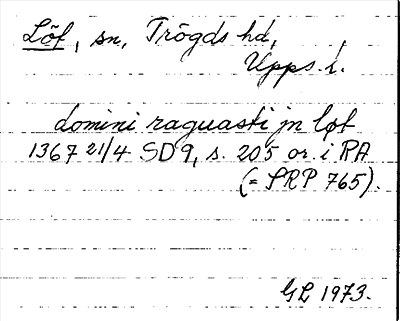 Löf, sn, Trögds hd,
Upps. l.
domini raguasti jn løt
1367 21/4 SD 9, s. 205 or. i RA
(= SRP 765).
GL 1973.